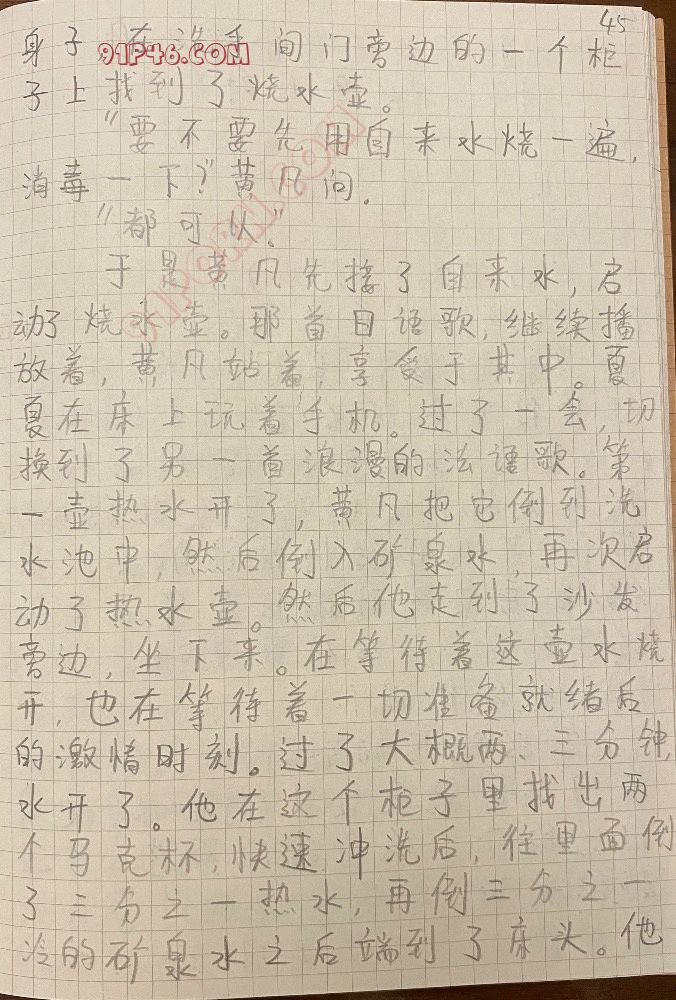 45
身子，在洗手间门旁边的一个柜
91P46.COM
子上找到了烧水壶。
“要不要先用自来水烧一遍，
消毒一下？”黄凡问。
“都可以。”
于是黄凡先接了自来水，启
动了烧水壶。那首日语歌，继续播
放着，黄凡站着，享受于其中。夏
夏在床上玩着手机。过了一会，切
换到了另一首浪漫的法语歌。第
一壶热水开了，黄凡把它倒到洗
水池中，然后倒入矿泉水，再次启
动了热水壶。然后他走到了沙发
旁边，坐下来。在等待着这壶水烧
开，也在等待着一切准备就绪后
的激情时刻。过了大概两、三分钟，
水开了。他在这个柜子里找出两
个马克杯，快速冲洗后，往里面倒
了三分之一热水，再倒三分之一
冷的矿泉水之后端到了床头。他